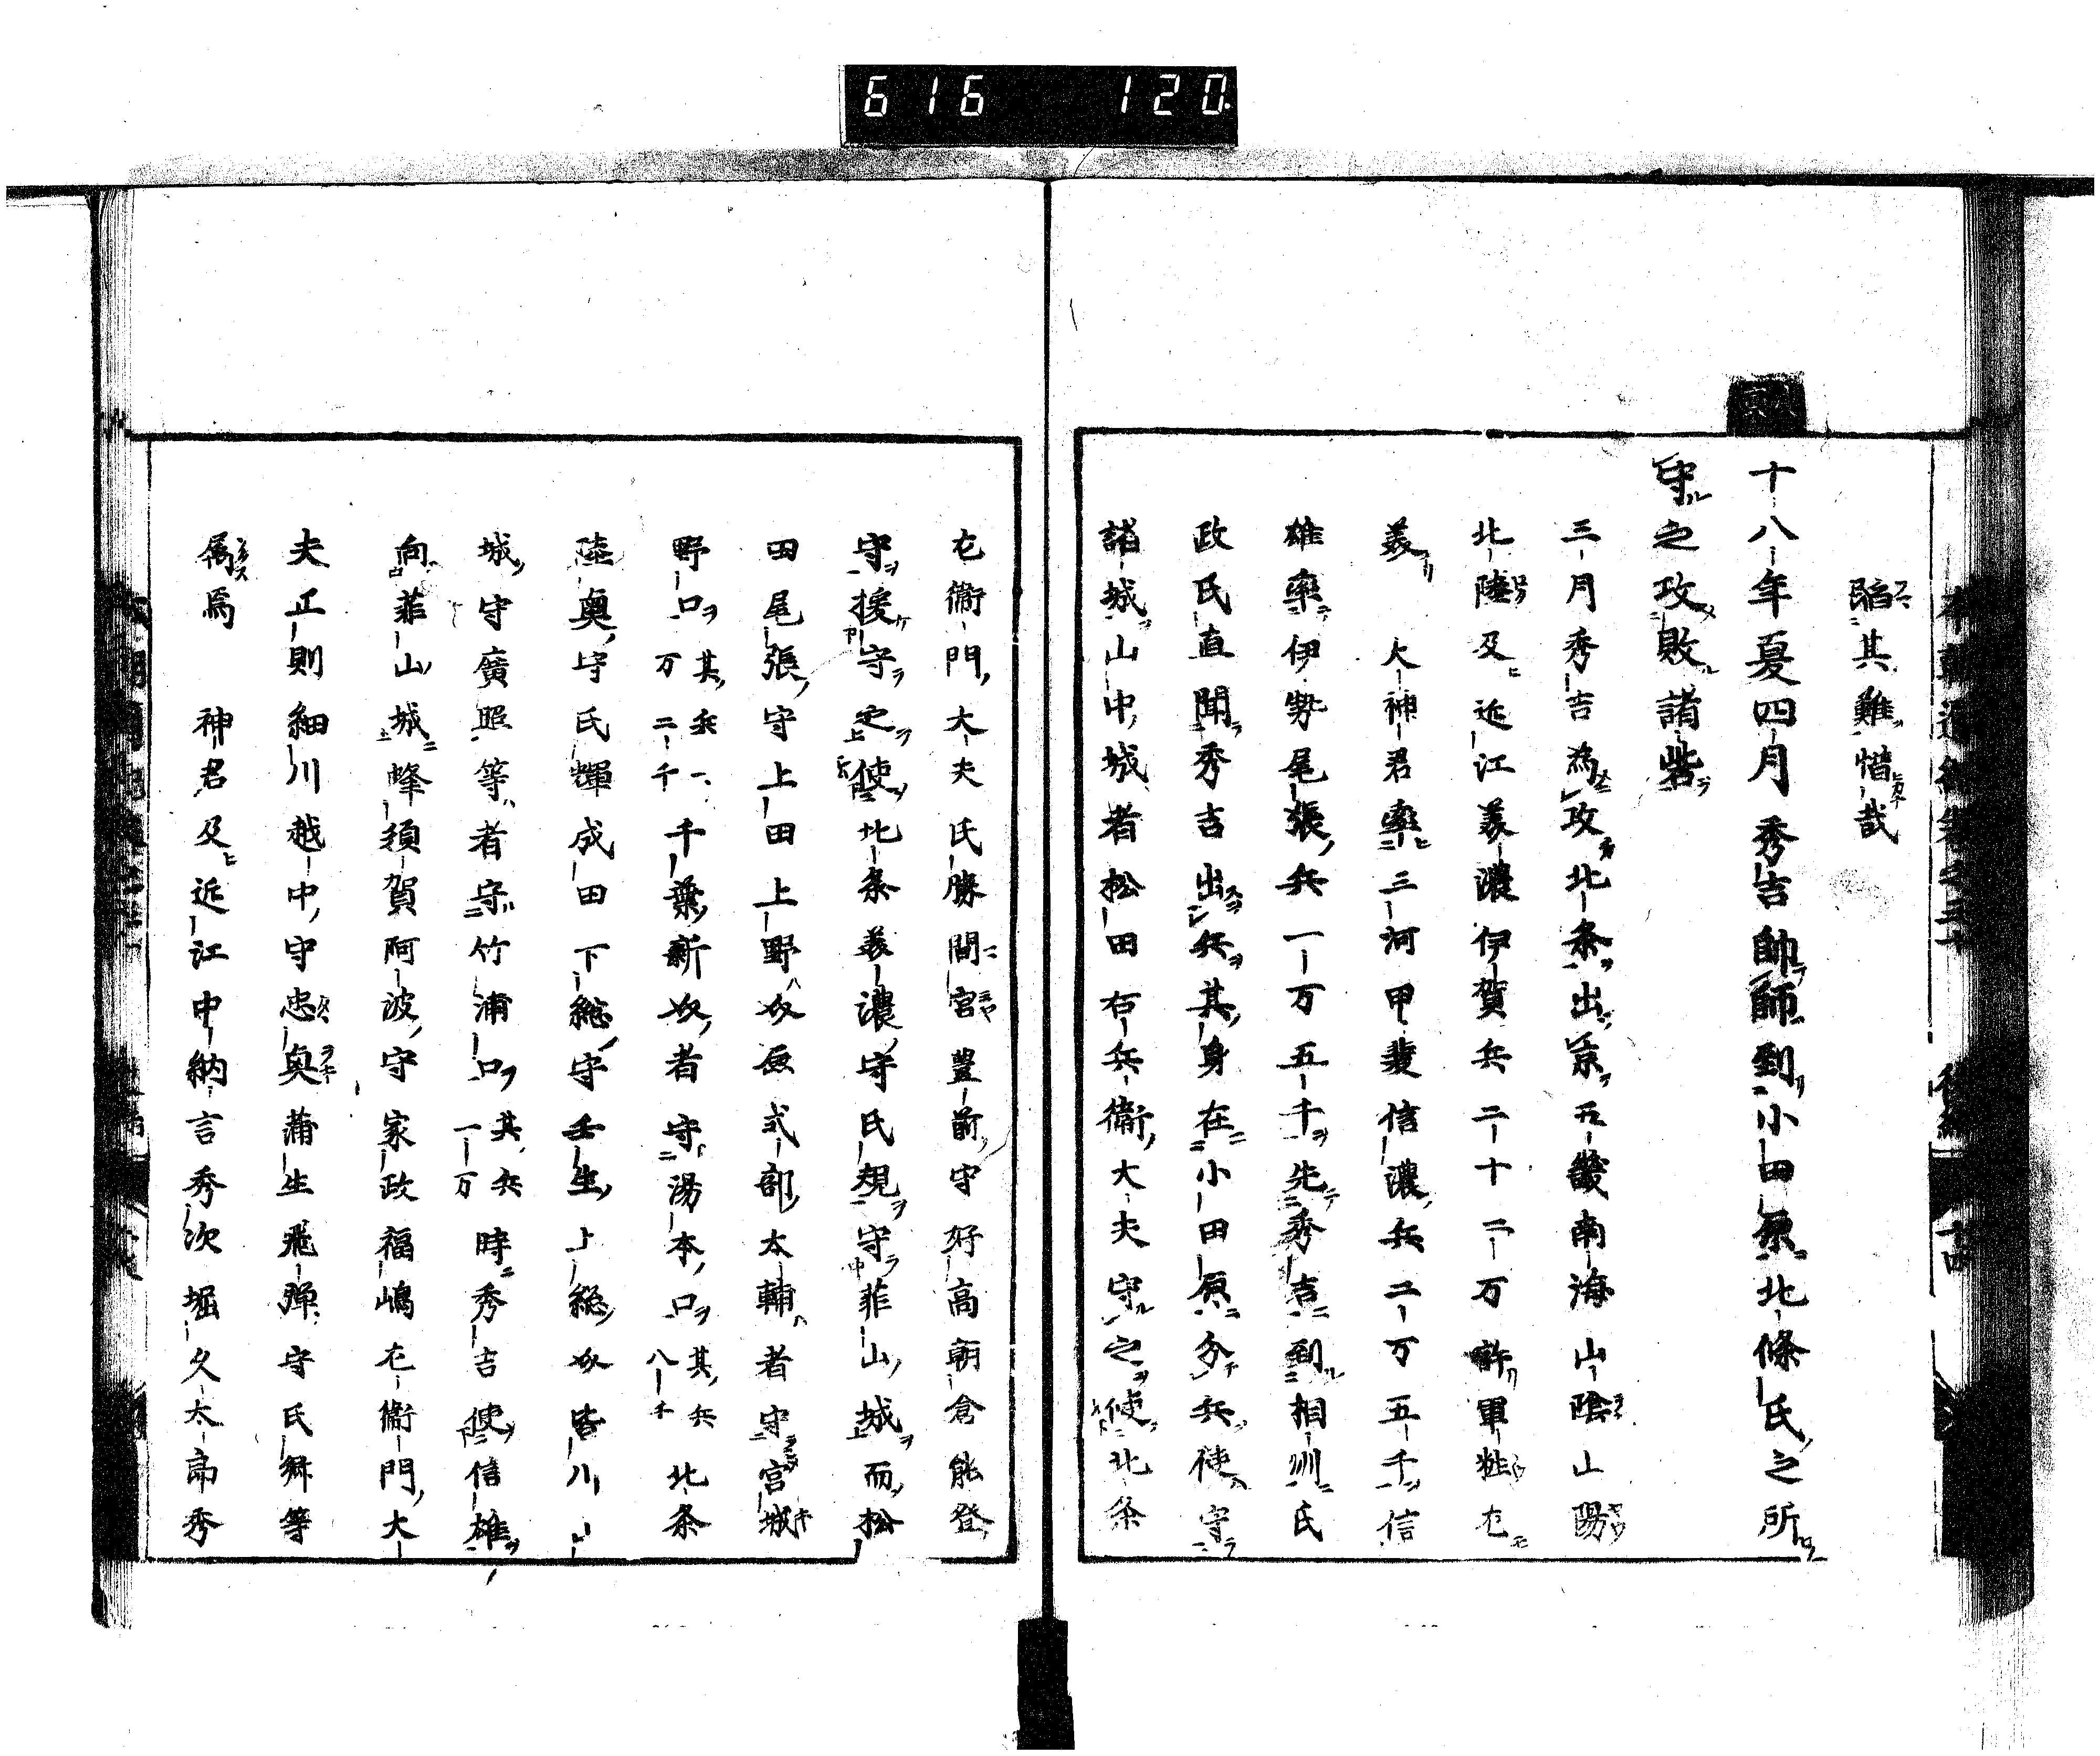 616 120
陷其難惜哉
十八年夏四月秀吉帥師到小田原北條氏之所
守之攻敗諸砦
三月秀吉為攻北条出京五畿南海山陰山陽
北陸及近江美濃伊賀兵二十二万許軍粧尤
美 大神君率三河甲斐信濃兵二万五千信
雄率伊勢尾張兵一万五千先秀吉到相州氏
政氏直聞秀吉出兵其身在小田原分兵使守
諸城山中城者松田右兵衞大夫守之使北条
左衞門大夫氏勝間宮豊前守好高朝倉能登
守援守之使北条美濃守氏規守菲山城而松
田尾張守上田上野介原式部太輔者守宮城
野口其兵一万二千千葉新介者守湯本口其兵八千北条
陸奥守氏輝成田下総守壬生上総介皆川山
城守廣照等者守竹浦口其兵一万時秀吉使信雄
向菲山城蜂須賀阿波守家政福嶋左衞門大
夫正則細川越中守忠奥蒲生飛彈守氏郷等
属焉 神君及近江中納言秀次堀久太郎秀